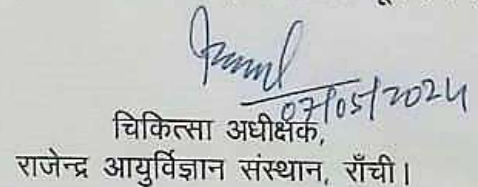 07/05/2024
चिकित्सा अधीक्षक,
राजेन्द्र आयुर्विज्ञान संस्थान, राँची।